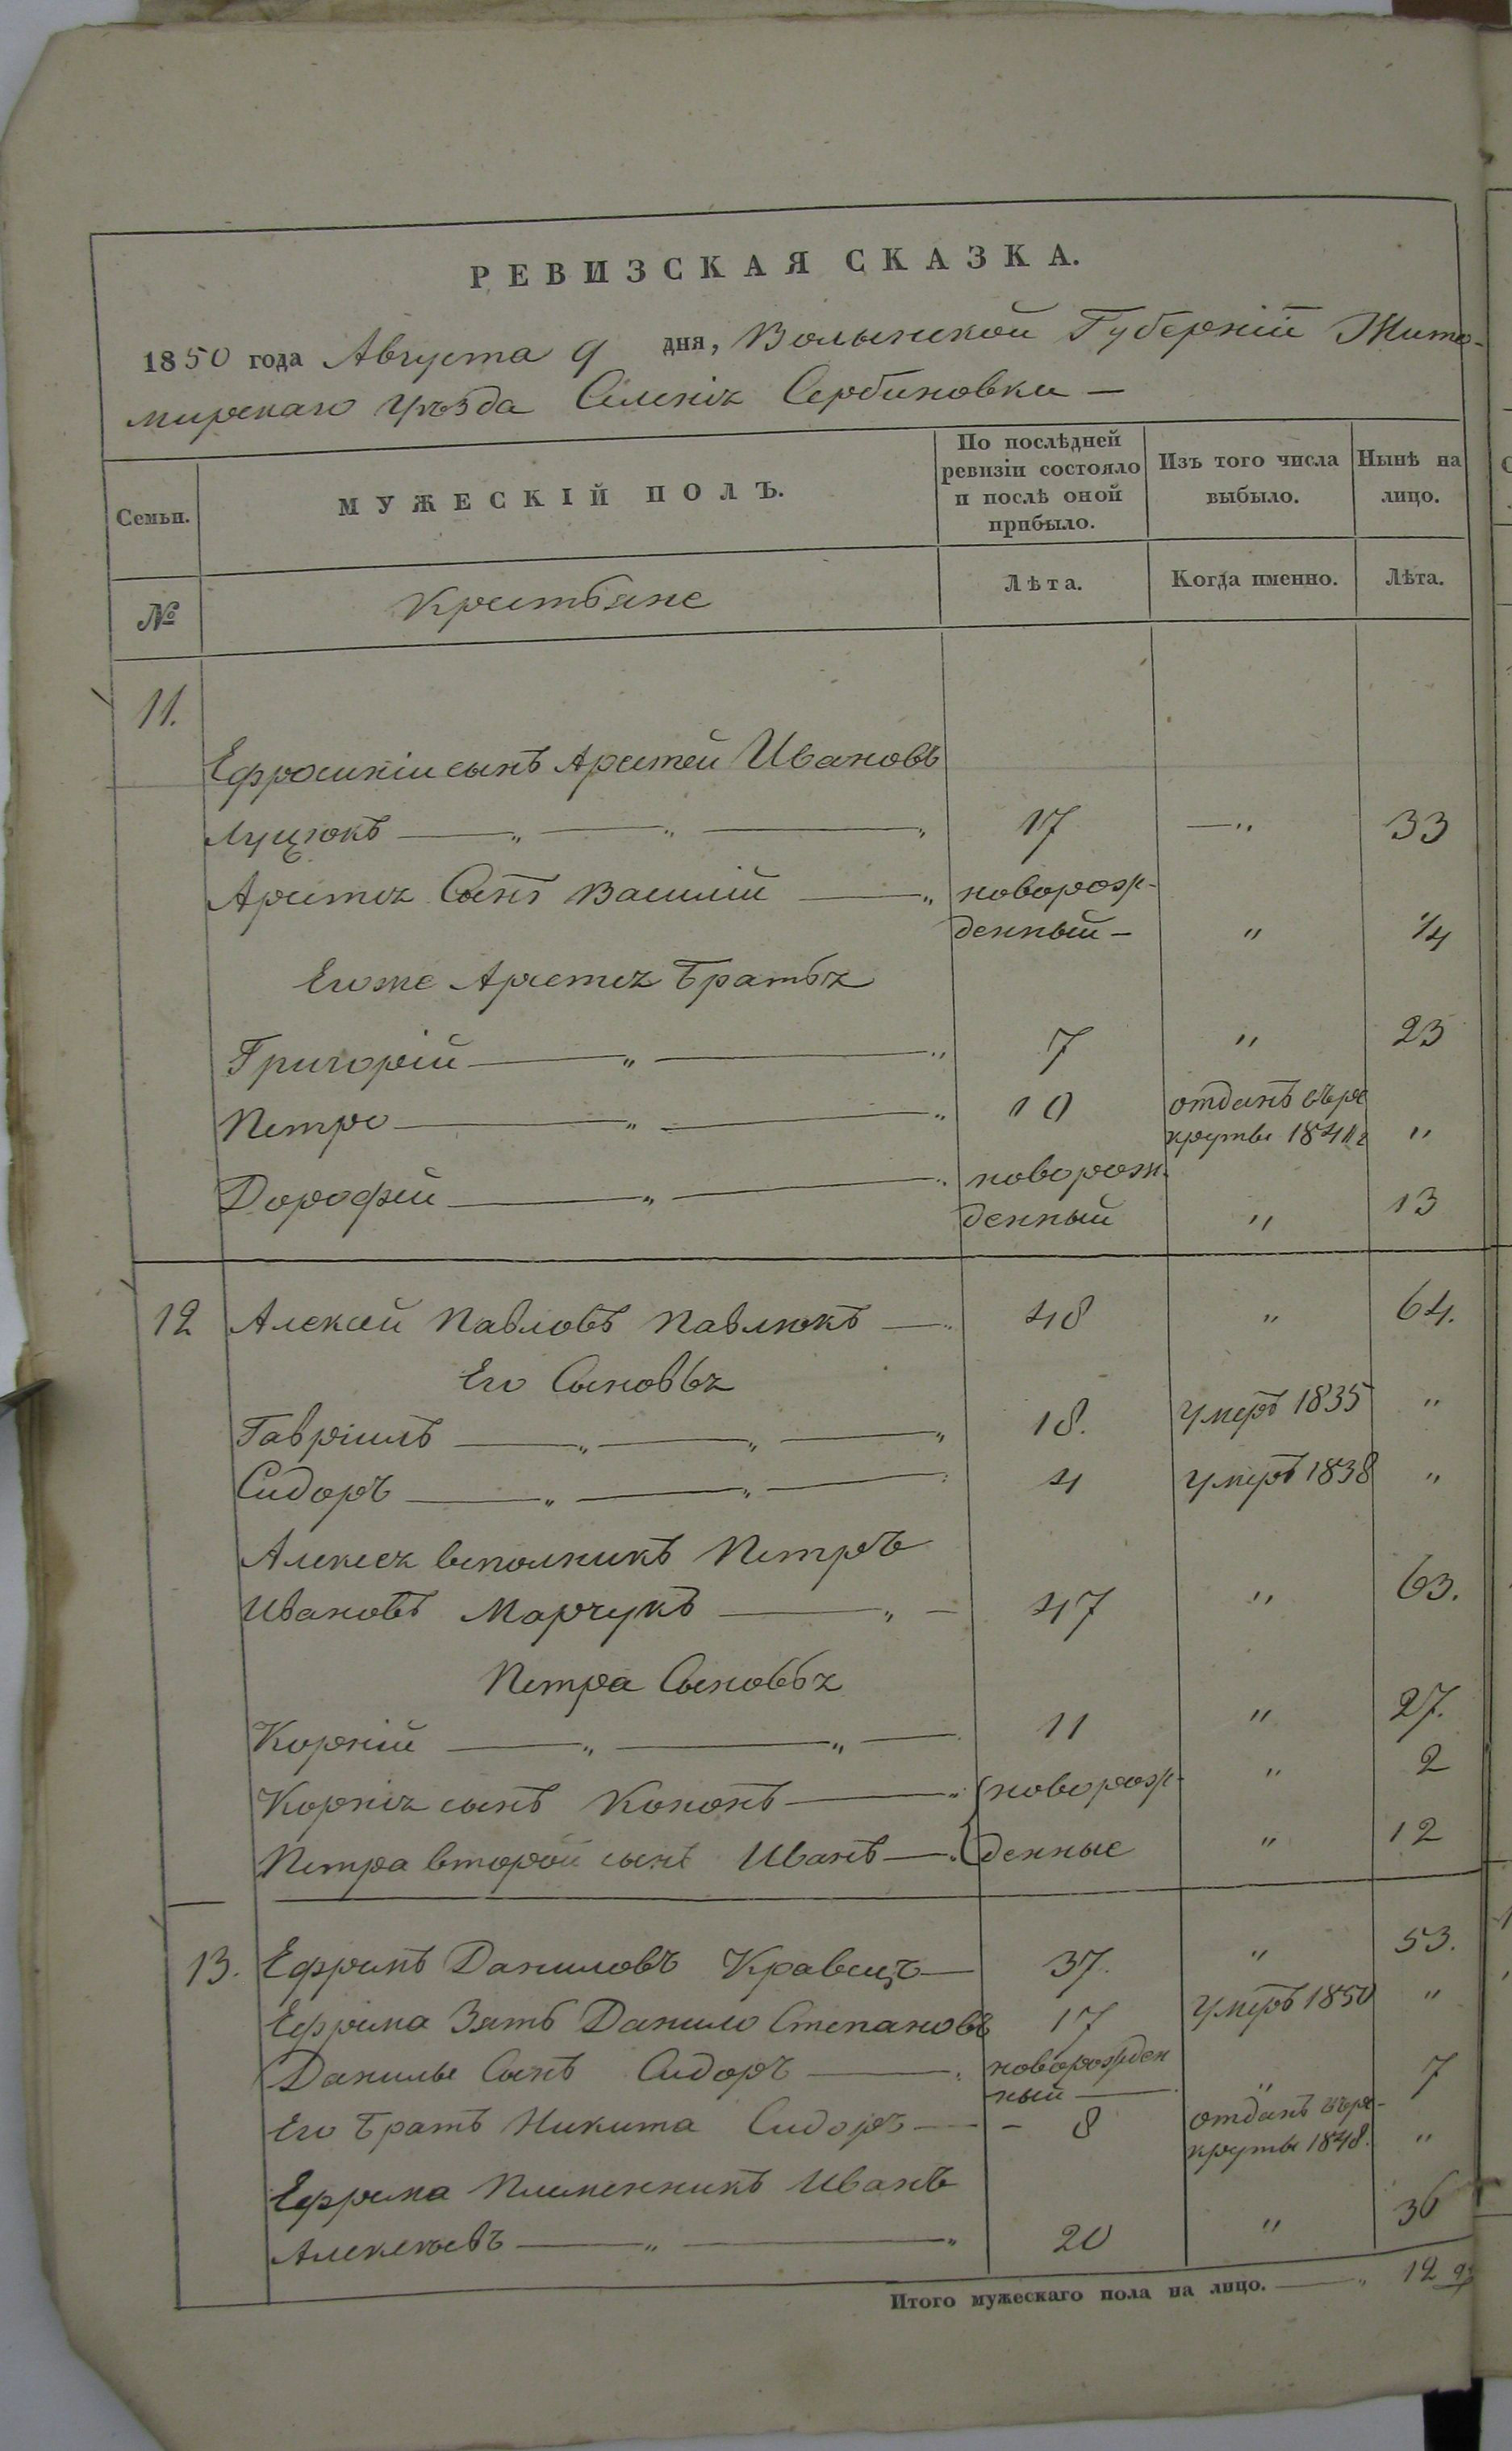 РЕВИЗСКАЯ СКАЗКА.
1850 года Августа 9 дня, Волынской Губерніи Жито-
мирскаго Уѣзда Селенія Сербиновки —
Семьи. МУЖЕСКІЙ ПОЛЪ. По послѣдней ревизіи состояло и послѣ оной прибыло. Изъ того числа выбыло. Нынѣ на лицо.
№ Крестьяне Лѣта. Когда именно. Лѣта.
11.
Ефросиніи сынъ Арстей Ивановъ
Луцюкъ — „ — „ — „ 17 — „ 33
Арстея Сынъ Василій — „ новорож-
денный — „ 1/4
Егоже Арстея братья
Григорій — „ — „ 7 „ 23
Петро — „ — „ 10 отданъ въ ре
круты 1841 г „
Дорофей — „ — „ новорож-
денный „ 13
12 Алексей Павловъ Павлюкъ — „ 48 „ 64.
Его Сыновья
Гавріилъ — „ — „ — „ 18. умеръ 1835 „
Сидоръ — „ — „ — 4 умеръ 1838 „
Алексея вспольникъ Петръ
Ивановъ Марчукъ — „ — 47 „ 63.
Петра Сыновья
Корній — „ — „ — 11 „ 27.
Корнія сынъ Кононъ — „ новорож- „ 2
Петра второй сынъ Иванъ — „ денные „ 12
13. Ефримъ Даниловъ Кравецъ — 37. „ 53.
Ефрима Зять Данило Степановъ 17 умеръ 1850 „
Данилы Сынъ Сидоръ — новорожден
ный — „ 7
Его братъ Никита Сидоръ — - 8 отданъ въ ре-
круты 1848. „
Ефрима Племенникъ Иванъ
Алексеевъ — „ — „ 20 „ 36
Итого мужескаго пола на лицо. — „ 12